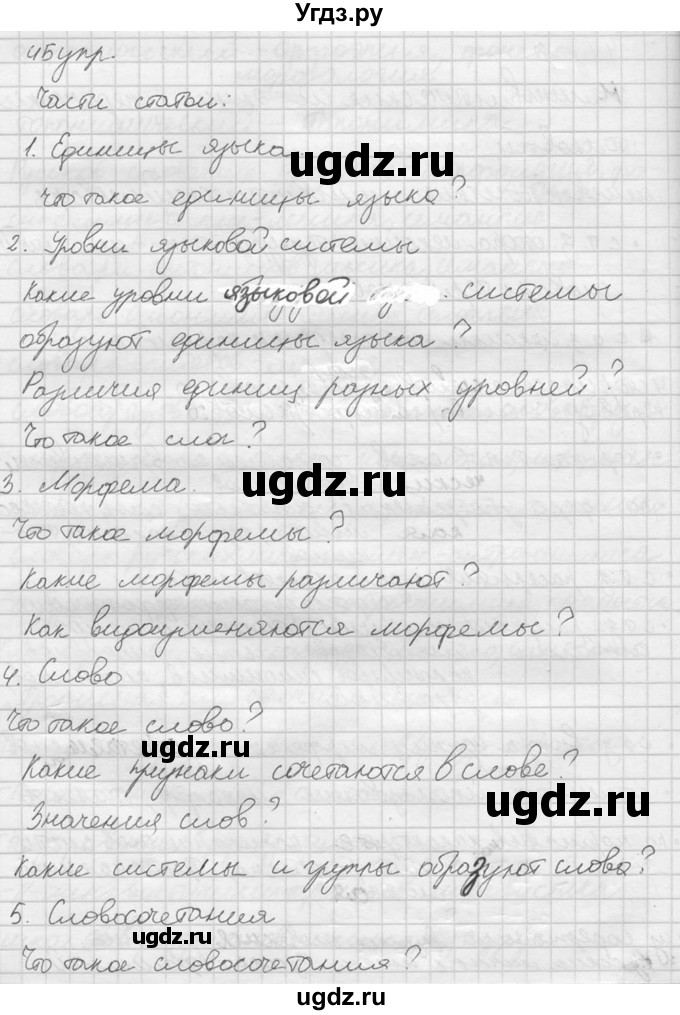 Угдз.ру
45упр.
Части статьи:
1. Единицы языка
ugdz.ru
Что такое единицы языка?
2. Уровни языковой системы
Какие уровни языковой системы
образуют единицы языка?
Различия единиц разных уровней?
Что такое слог?
3. Морфема.
ugdz.ru
Что такое морфемы?
Какие морфемы различают?
Как видоизменяются морфемы?
4. Слово
Что такое слово?
ugdz.ru
Какие признаки сочетаются в слове?
ugdz.ru
Значения слов?
Какие системы и группы образуют слова?
5. Словосочетания
ugdz.ru
Что такое словосочетания?
ugdz.ru